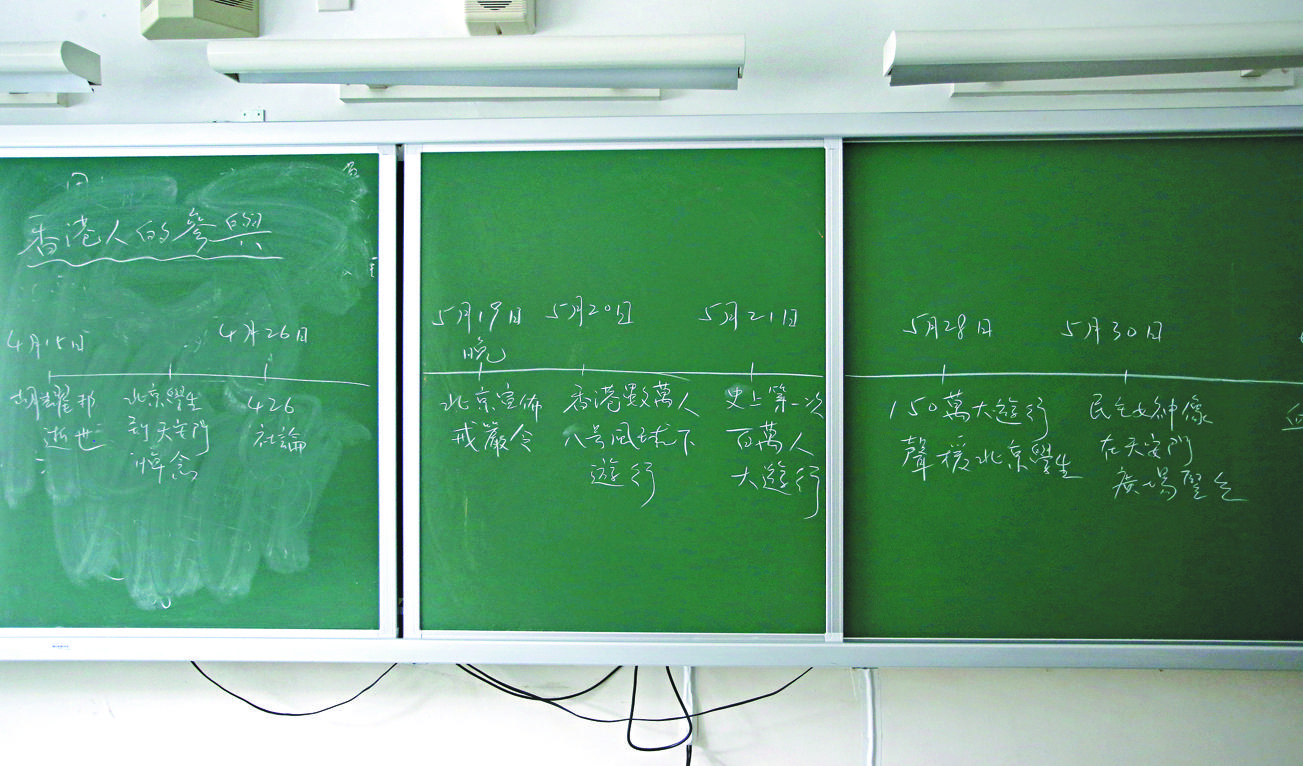 香港人的參與
4月15日
胡耀邦
逝世
北京學生
到天安門
悼念
4月26日
426
社論
5月19日
晚
北京宣佈
戒嚴令
5月20日
香港數萬人
八号風球下
遊行
5月21日
史上第一次
百萬人
大遊行
5月28日
150萬大遊行
聲援北京學生
5月30日
民主女神像
在天安門
廣場豎立